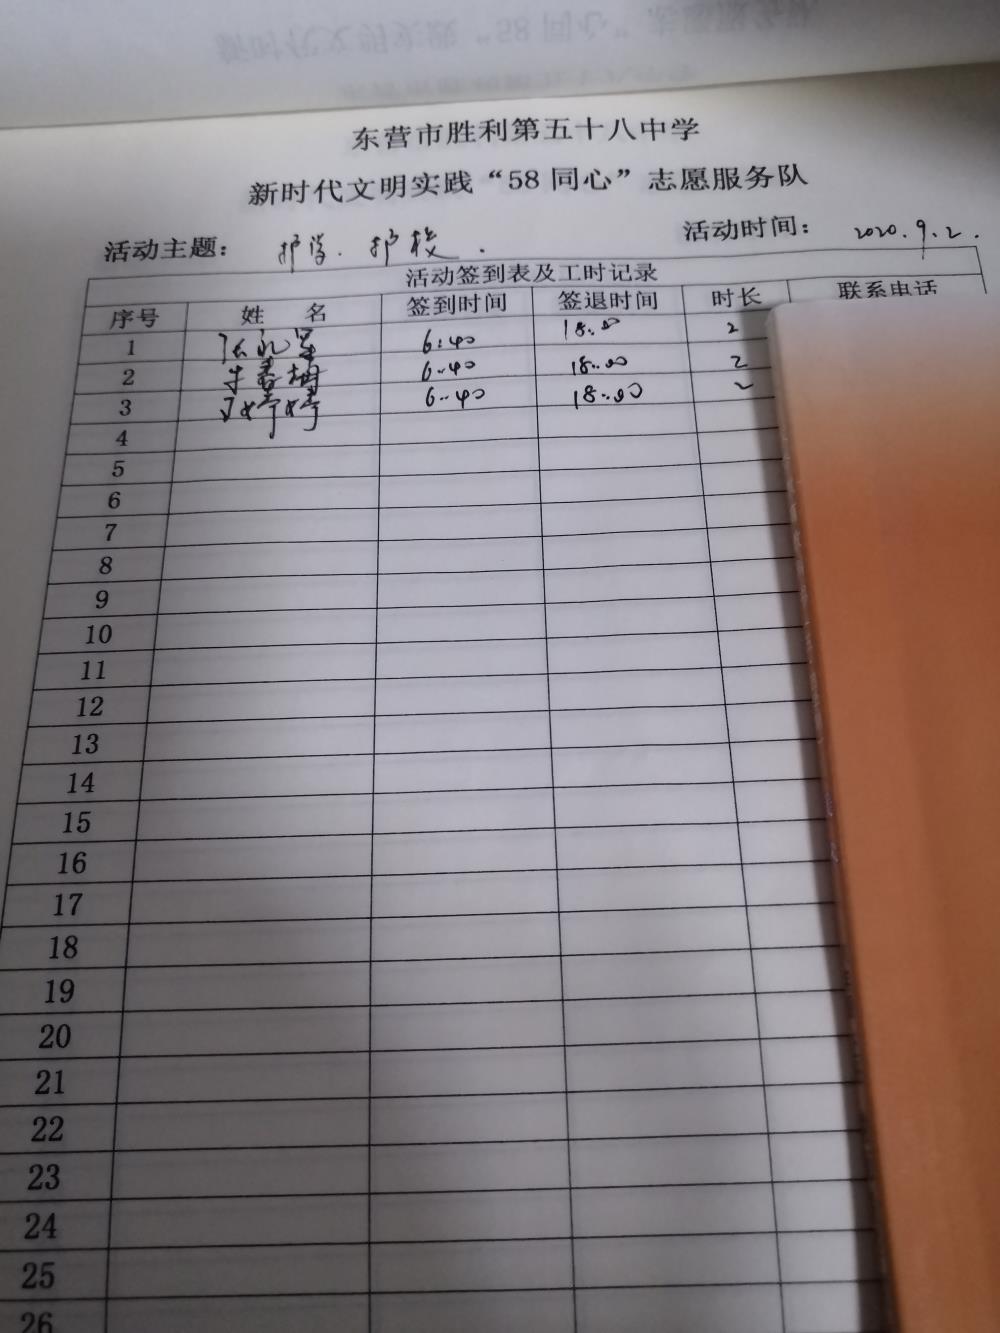 东营市胜利第五十八中学
新时代文明实践“58同心”志愿服务队
活动主题： 护学．护校． 活动时间： 2020.9.2.
活动签到表及工时记录
序号 姓 名 签到时间 签退时间 时长 联系电话
1 6:40 18:00 2
2 6:40 18:00 2
3 婷婷 6:40 18:00 2
4
5
6
7
8
9
10
11
12
13
14
15
16
17
18
19
20
21
22
23
24
25
26